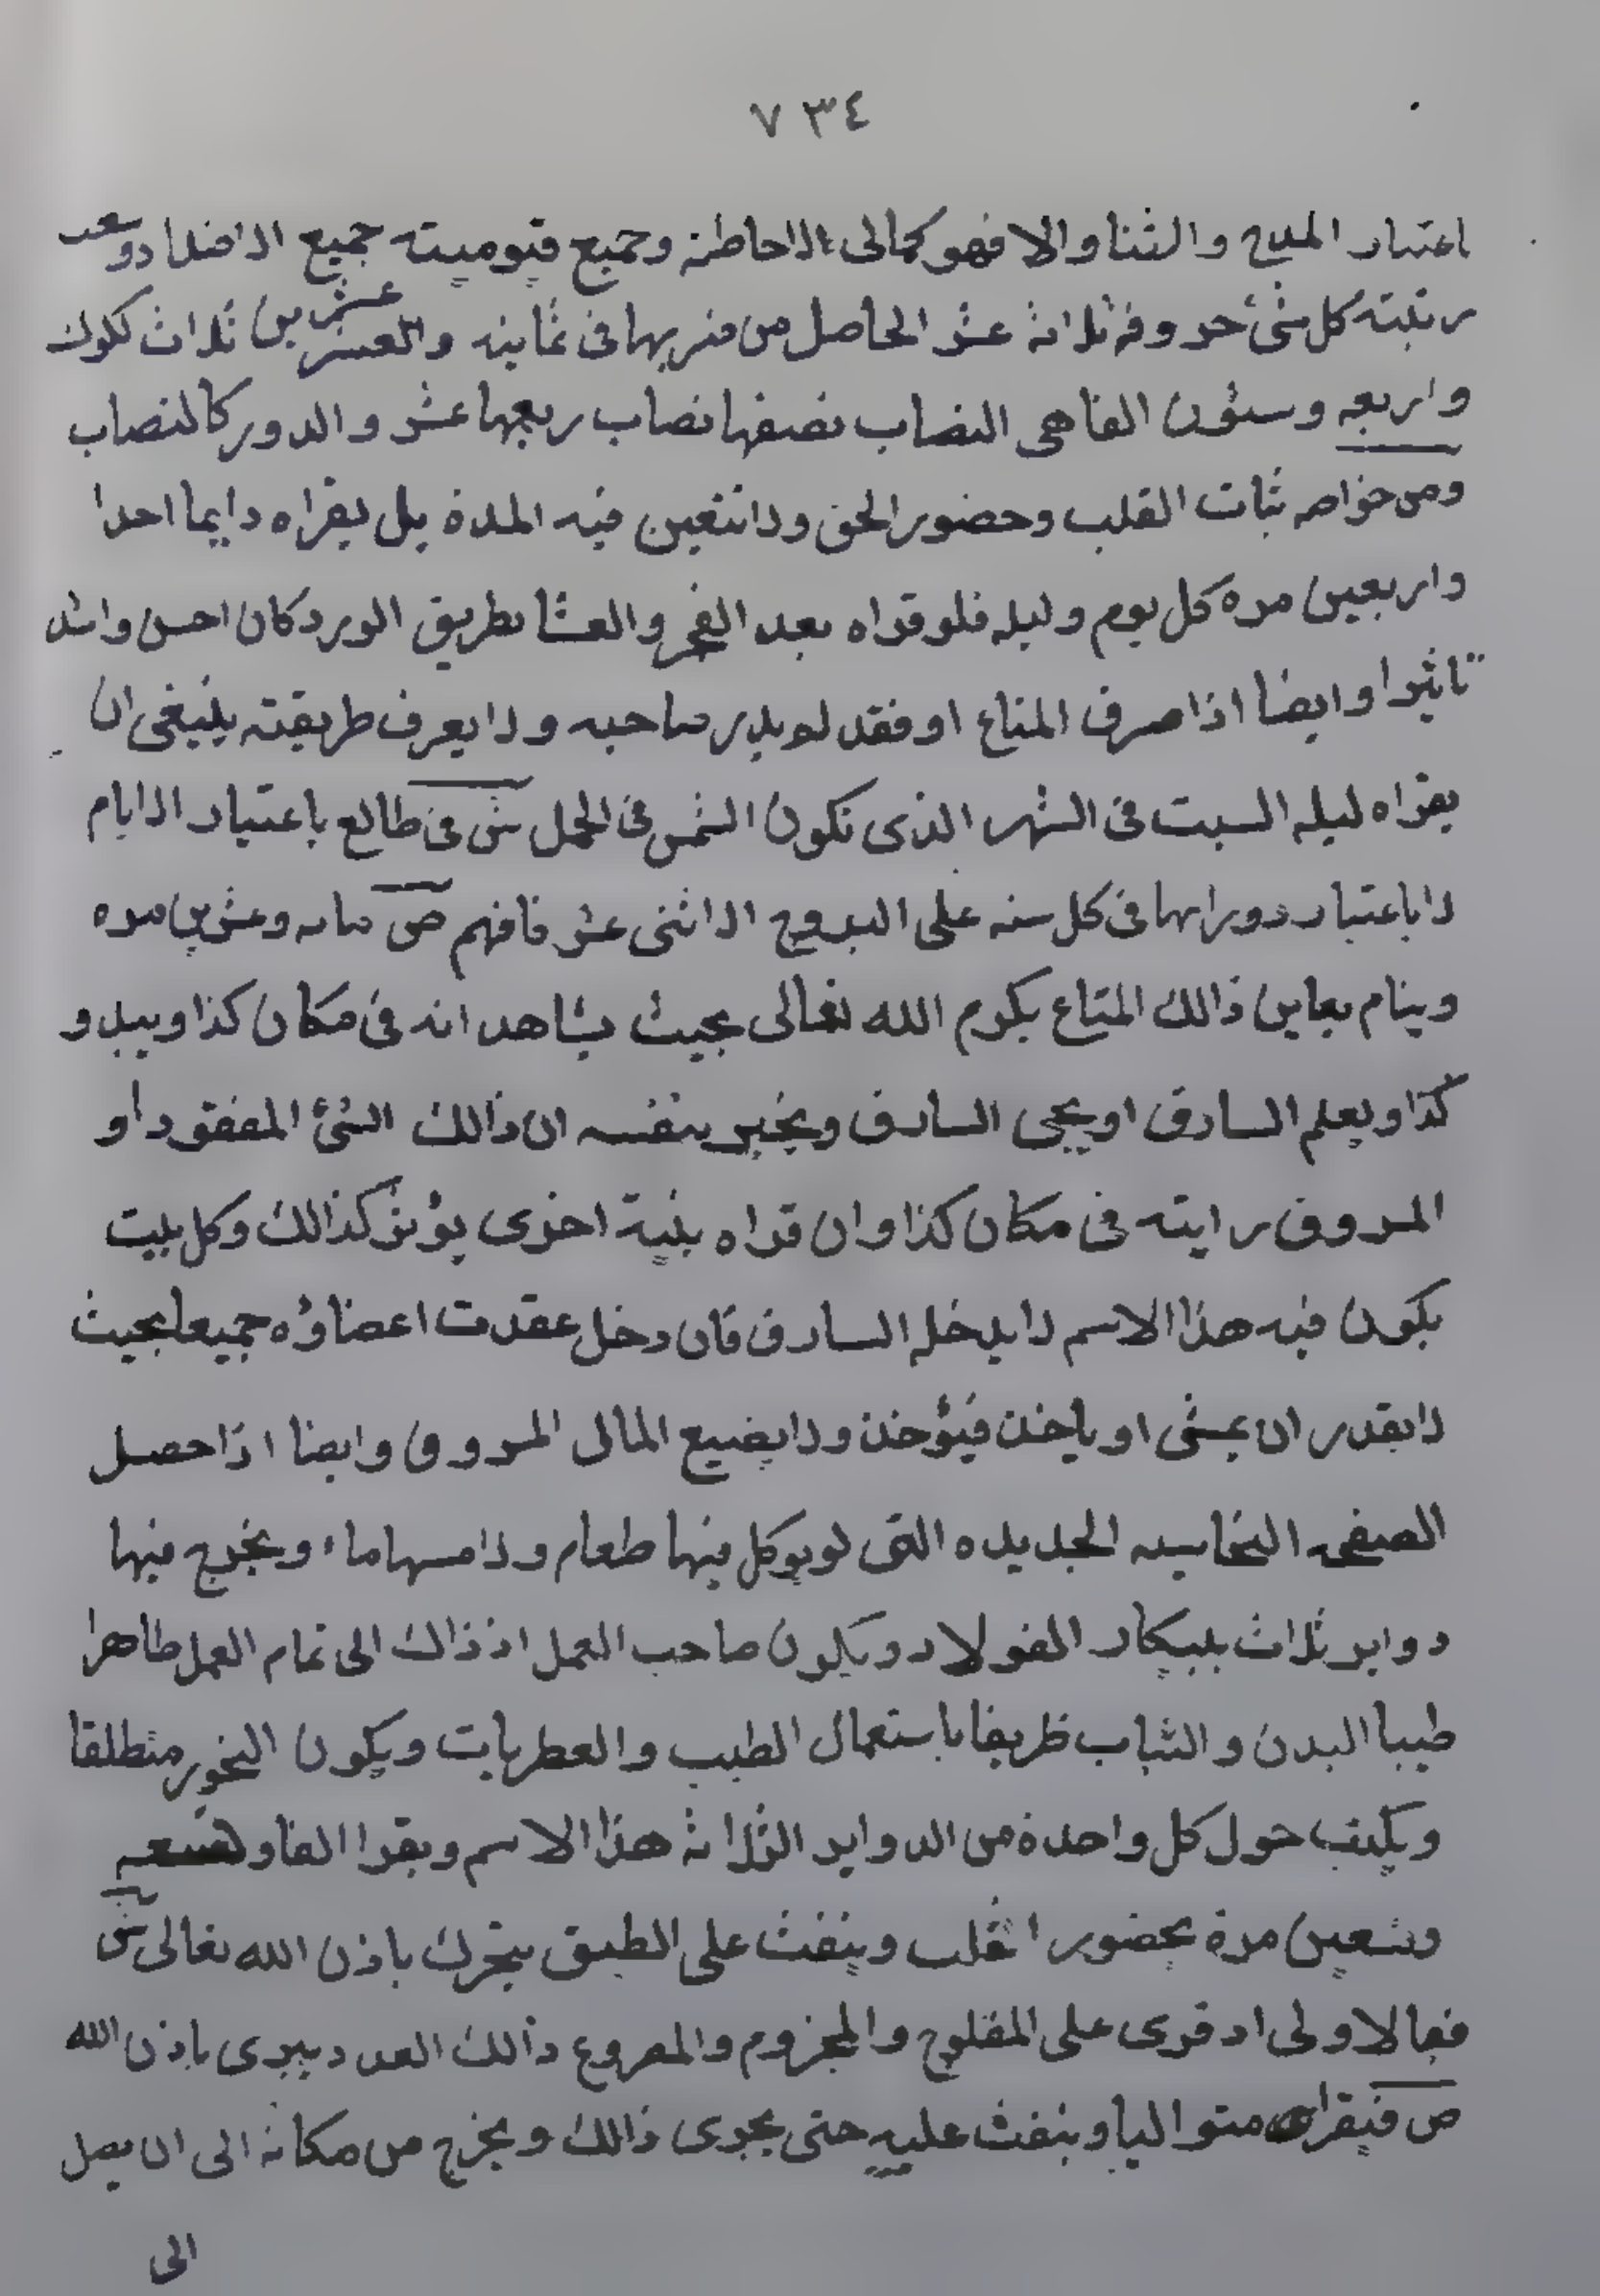 ٧٣٤
باعتبار المدح والثنا والا فهو كمالى الاحاطة وجميع قيوميته جميع الافلا دو
رتبته كل شئ حروفه ثلاثة عشر الحاصل من ضربها فى ثمانيه والعشرين ثلاث
واربعه وستون الفا هى النصاب نصفها نصاب ربعها عشر والدور كالنصاب
ومن خواصه ثبات القلب وحضور الحق ولا تتعين فيه المدة بل يقراه دايما احدا
واربعين مره كل يوم وليله فلو قراه بعد الفجر والعشا بطريق الورد كان احسن واشد
تاثيرا وايضا اذا سرق المتاع او فقد لم يدر صاحبه ولا يعرف طريقته ينبغى ان
يقراه ليلة السبت فى الشهر الذى تكون الشمس فى الحمل ش فى طالع باعتبار الايام
لا باعتبار دورانها فى كل سنه على البروج الاثنى عشر فافهم ص مايه وعشرين مره
وينام يعاين ذالك المتاع بكرم الله تعالى بحيث يشاهد انه فى مكان كذا وبيد و
كذا ويعلم السارق او يجى السارق ويخبر بنفسه ان ذالك الشئ المفقود او
المسروق رايته فى مكان كذا وان قراه بنية اخرى يؤثر كذالك وكل بيت
يكون فيه هذا الاسم لا يدخله السارق فان دخل عقدت اعضاؤه جميعا بحيث
لا يقدر ان يمشى او ياخذ فيؤخذ ولا يضيع المال المسروق وايضا اذا حصل
الصفحه النحاسيه الجديده التى لم يوكل فيها طعام ولا مسها ماء ويخرج فيها
دواير ثلاث ببيكار الفولاد ويكون صاحب العمل اذ ذاك الى تمام العمل طاهرا
طيبا البدن والثياب ظريفا باستعمال الطيب والعطريات ويكون البخور منطلقا
ويكتب حول كل واحدة من الدواير الثلاثة هذا الاسم ويقرا الفا و تسعه
وتسعين مرة بحضور القلب وينفث على الطبق يتحرك باذن الله تعالى ش
فبالاولى اد قرى على المفلوج والمجزوم والمصروع ذالك العدد يبرى باذن الله
ص فيقراه متواليا وينفث عليه حتى يجرى ذالك ويخرج من مكانه الى ان يصل
الى